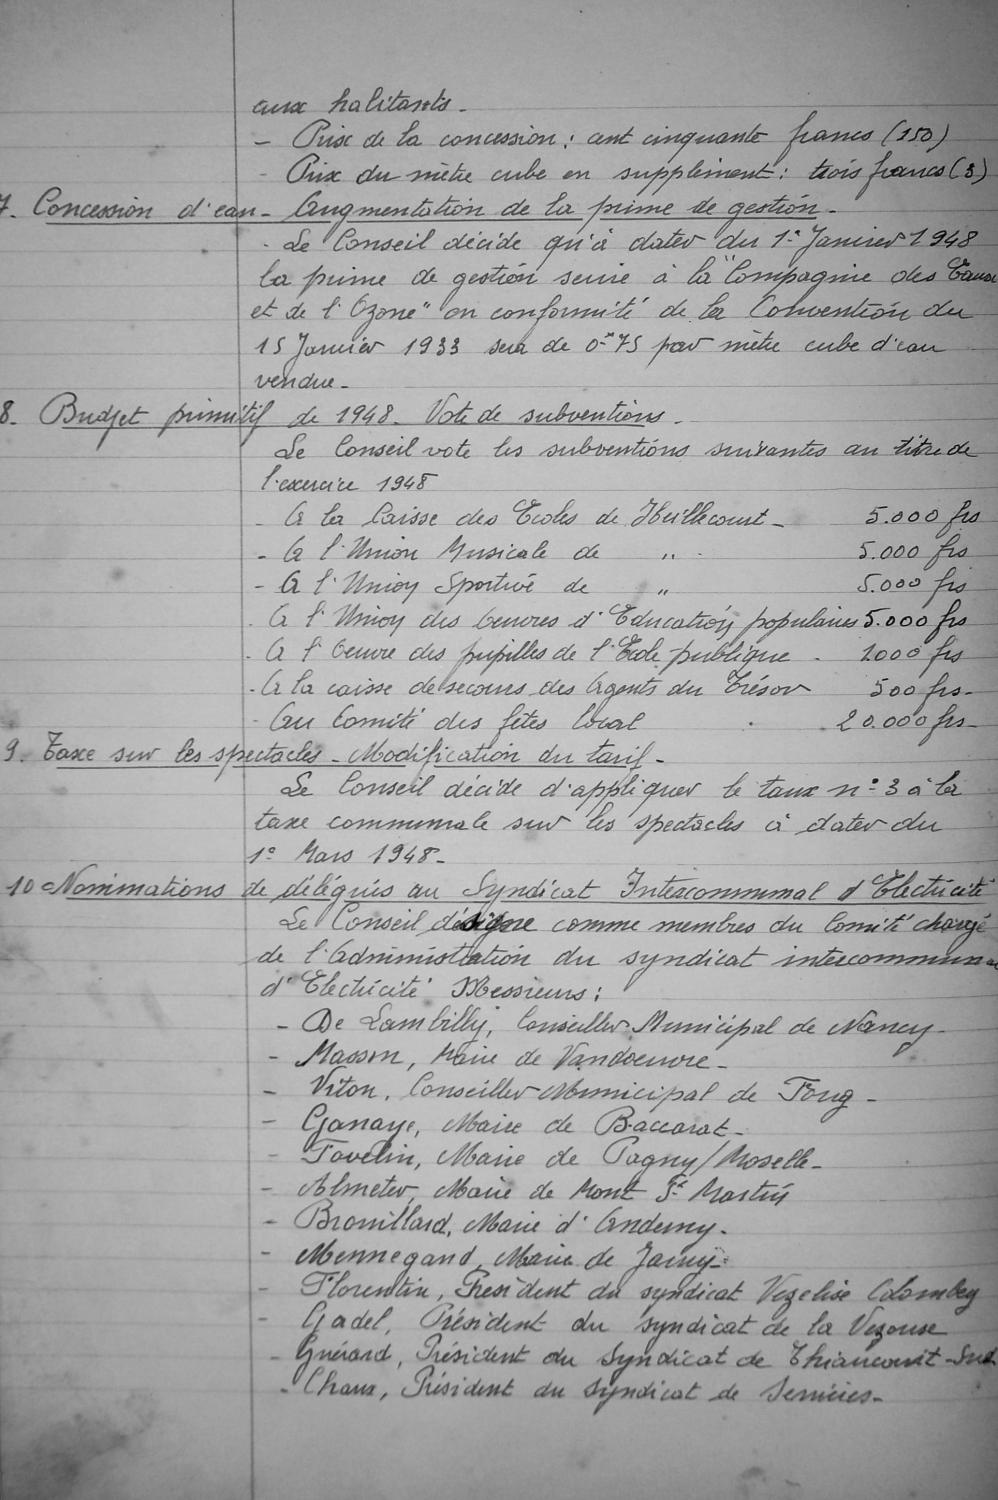 aux habitants -
- Prix de la concession : cent cinquante francs (150)
- Prix du mètre cube en supplément : trois francs (3)
7. Concession d'eau - Augmentation de la prime de gestion -
- Le Conseil décide qu'à dater du 1er Janvier 1948
la prime de gestion servie à la "Compagnie des Eaux
et de l'Ozone" en conformité de la Convention du
15 Janvier 1933 sera de 0fr75 par mètre cube d'eau
vendue -
8. Budjet primitif de 1948. Vote de subventions -
Le Conseil vote les subventions suivantes au titre de
l'exercice 1948
- A la Caisse des Ecoles de Heillecourt - 5.000 frs
- A l'Union Musicale de " - 5.000 frs
- A l'Union Sportive de " 5.000 frs
- A l'Union des Oeuvres d'Education populaires 5.000 frs
- A l'Oeuvre des pupilles de l'Ecole publique - 1.000 frs
- A la caisse de secours des Agents du Trésor 500 frs -
- Au Comité des fêtes local 20.000 frs -
9. Taxe sur les spectacles - Modification du tarif -
Le Conseil décide d'appliquer le taux n° 3 à la
taxe communale sur les spectacles à dater du
1er Mars 1948 -
10 - Nominations de délégués au Syndicat Intercommunal d'Electricité
Le Conseil désigne comme membres du Comité chargé
de l'Administration du syndicat intercommunal
d'Electricité Messieurs :
- De Lambilly, Conseiller Municipal de Nancy -
- Masson, Maire de Vandoeuvre -
- Viton, Conseiller Municipal de Foug -
- Ganaye, Maire de Baccarat -
- Tavelin, Maire de Pagny/Moselle -
- Almeter, Maire de Mont St Martin
- Brouillard, Maire d'Anderny -
- Mennegand, Maire de Jarny -
- Florentin, Président du syndicat Vezelise Colombey
- Gadel, Président du syndicat de la Vezouse
- Guérard, Président du Syndicat de Thiaucourt-Sud
- Chaux, Président du Syndicat de Serrières -